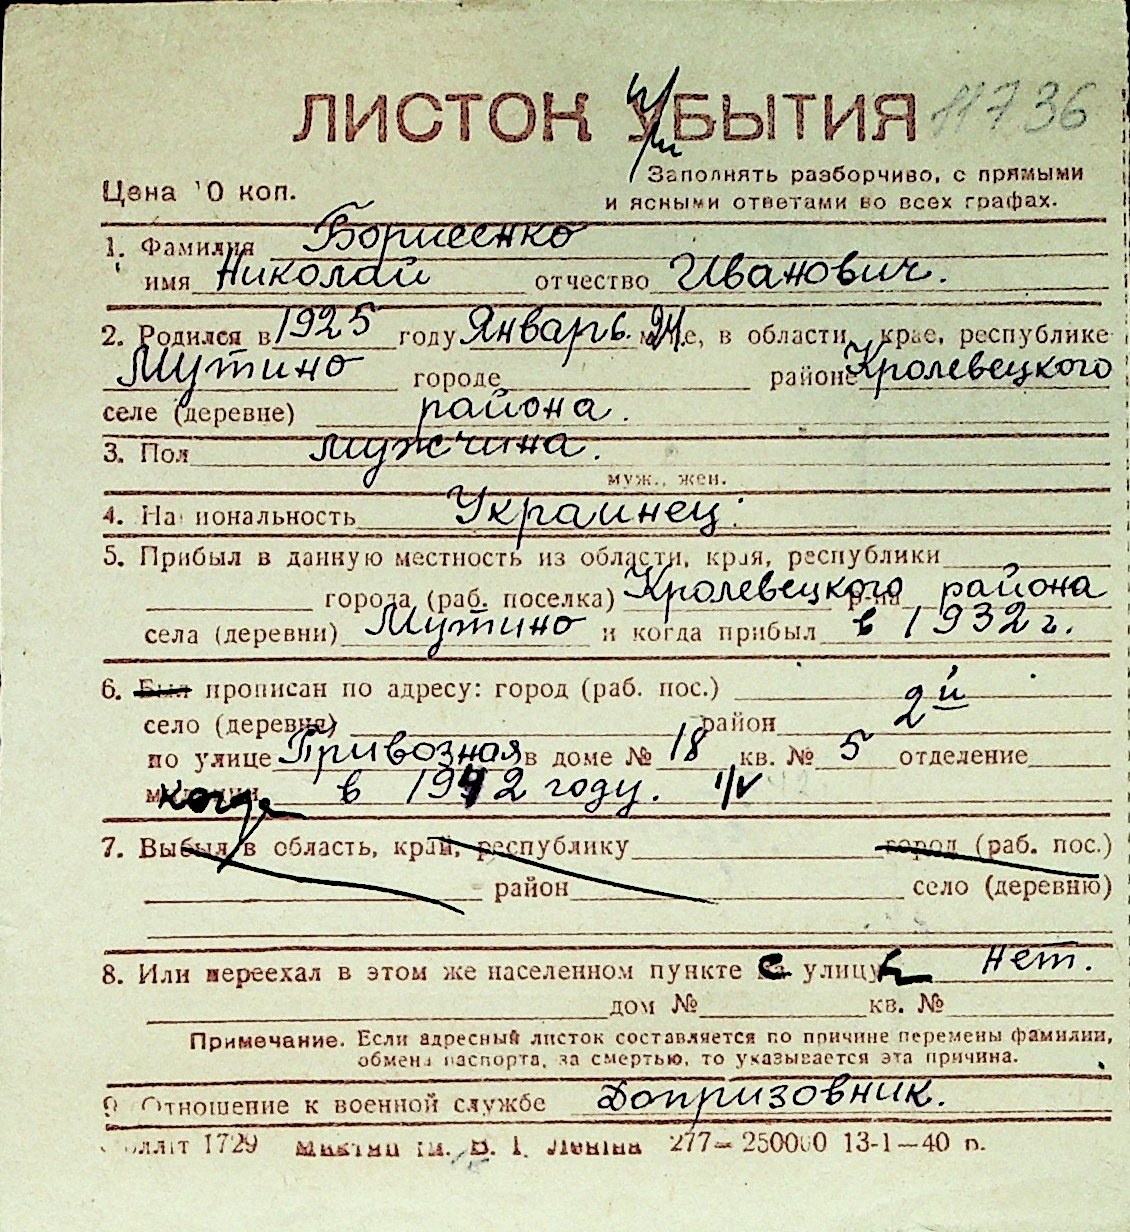 ЛИСТОК УБЫТИЯ 11736
При
Цена 10 коп.
Заполнять разборчиво, с прямыми
и ясными ответами во всех графах.
1. Фамилия Борисенко
имя Николай отчество Иванович.
2. Родился в 1925 году Январь 24. м-це, в области, крае, республике
Мутино городе районе Кролевецкого
селе (деревне) района.
3. Пол мужчина.
муж., жен.
4. Национальность Украинец.
5. Прибыл в данную местность из области, края, республики
города (раб. поселка) Кролевецкого р-на района
села (деревни) Мутино и когда прибыл в 1932 г.
6. Был прописан по адресу: город (раб. пос.)
село (деревня) район 2й
по улице Привозная в доме № 18 кв. № 5 отделение
милиции когда в 1942 году. 1/V
7. Выбыл в область, край, республику город (раб. пос.)
район село (деревню)
8. Или переехал в этом же населенном пункте с улицы нет.
дом № кв. №
Примечание. Если адресный листок составляется по причине перемены фамилии,
обмена паспорта, за смертью, то указывается эта причина.
9. Отношение к военной службе Допризовник.
1729 Ленина 277—250000 13-1—40 р.